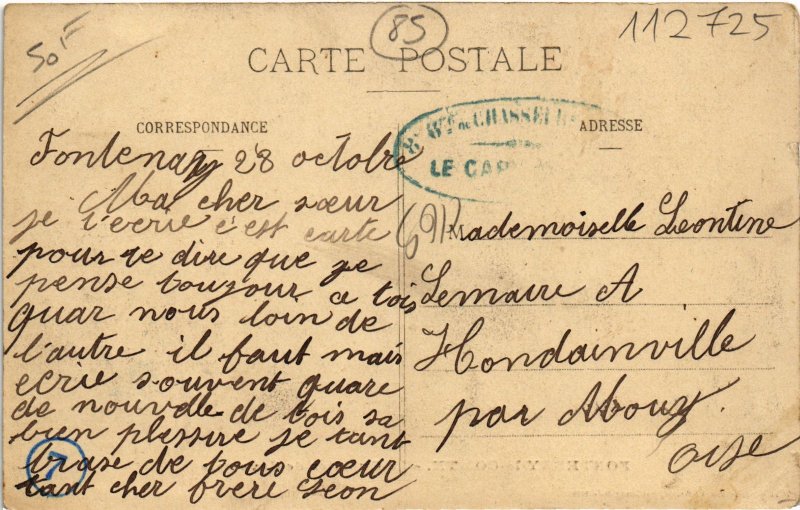 50F
85
112725
CARTE POSTALE
CORRESPONDANCE
ADRESSE
CHASSEUR
LE CAP
Fontenay 28 octobre
Ma cher sœur
je t'ecrie c'est carte
pour te dire que je
pense toujour a tois
quar nous loin de
l'autre il faut mais
ecrie souvent quare
de nouvelle de tois sa
bien plessire je tant
brase de tous cœur
tant cher frere Leon
Mademoiselle Leontine
Lemaire A
Hondainville
par Mouy
oise
7